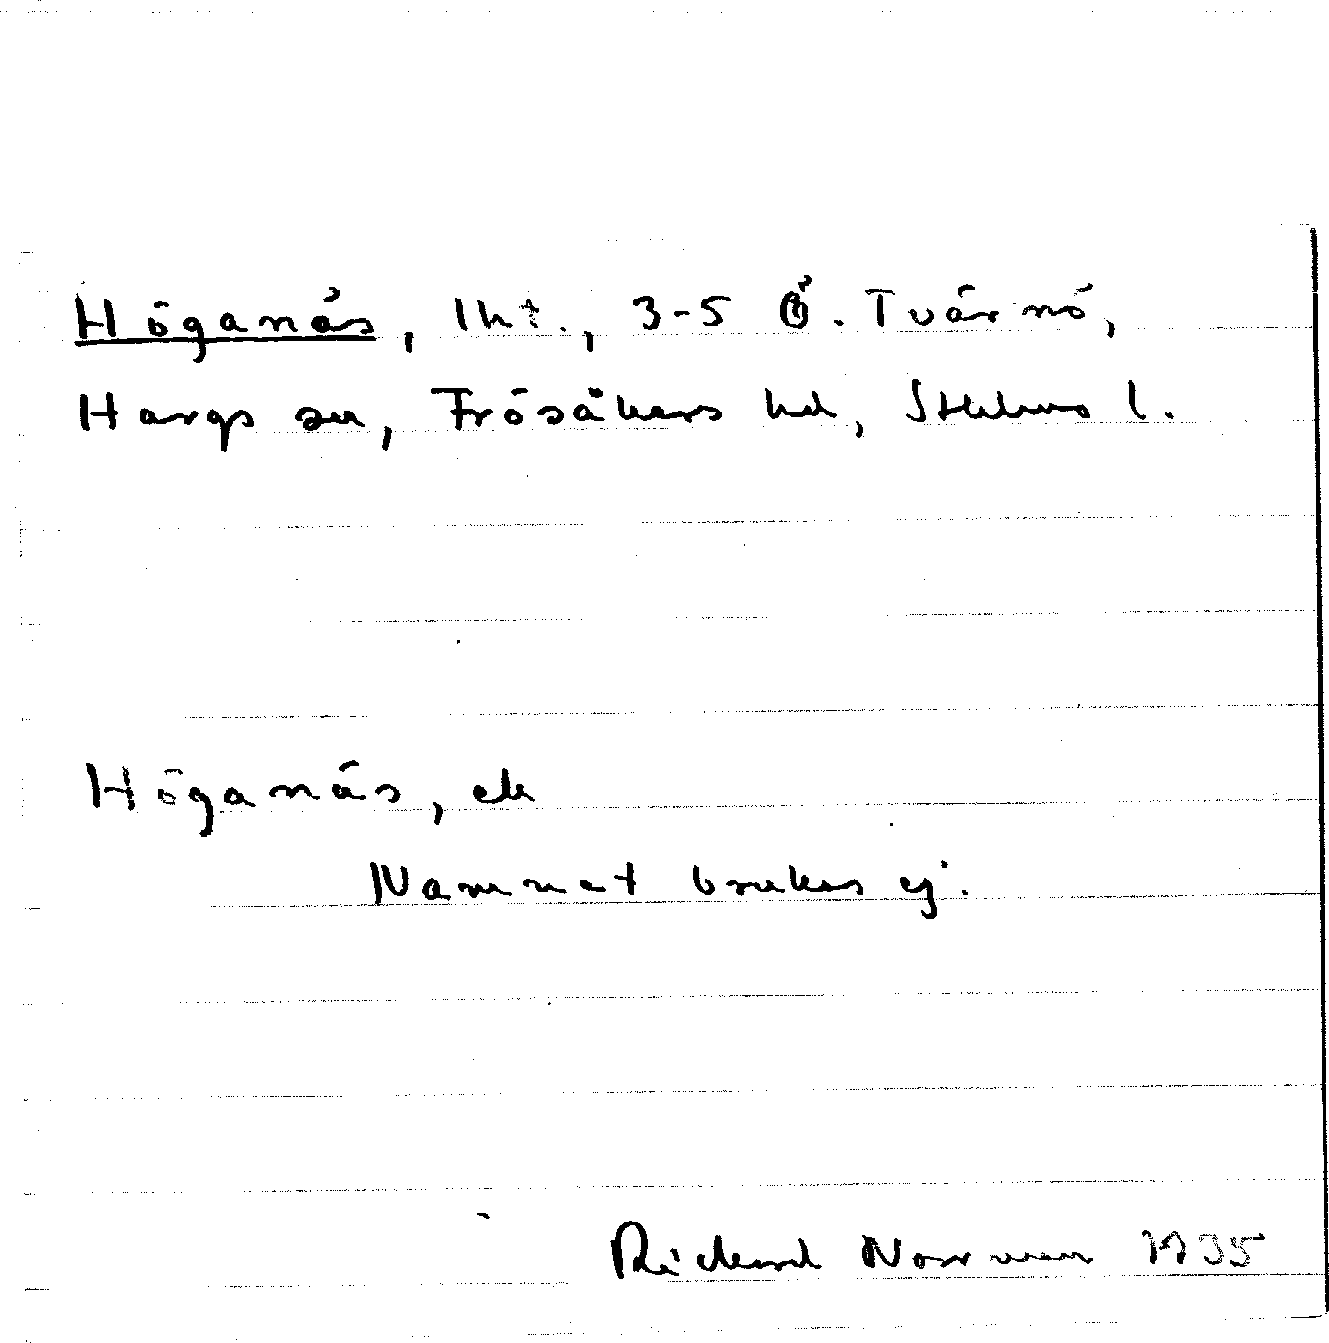 Höganäs, lht., 3-5 Ö. Tvärnö,
Hargs sn, Frösåkers hd, Sthlms l.
Höganäs, ek
Namnet brukas ej.
Rickard Norrman 1935